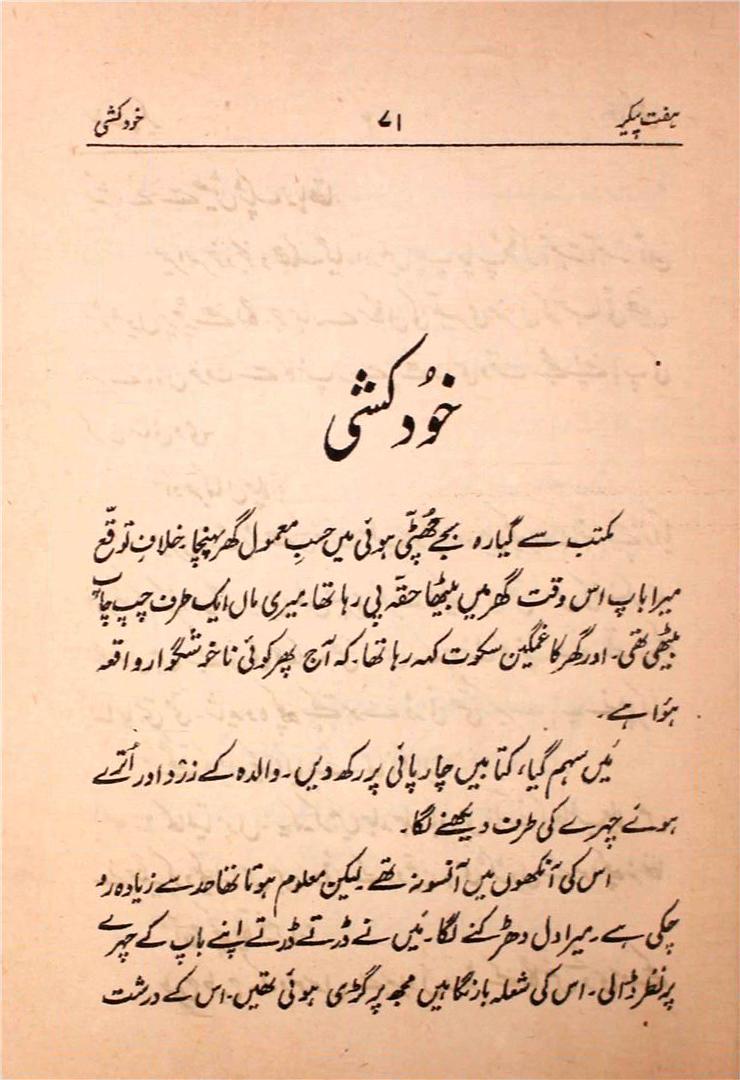 ہفت پیکر ۷۱ خودکشی
خُودکشی
مکتب سے گیارہ بجے چھُٹّی ہوئی میں حسبِ معمول گھر پہنچا۔ خلافِ توقّع
میرا باپ اس وقت گھر میں بیٹھا حقّہ پی رہا تھا۔ میری ماں ایک طرف چپ چاپ
بیٹھی تھی۔ اور گھر کا غمگین سکوت کہہ رہا تھا۔ کہ آج پھر کوئی ناخوشگوار واقعہ
ہؤا ہے۔
مَیں سہم گیا، کتابیں چارپائی پر رکھ دیں۔ والدہ کے زرد اور اُترے
ہوئے چہرے کی طرف دیکھنے لگا۔
اس کی آنکھوں میں آنسو نہ تھے لیکن معلوم ہوتا تھا حد سے زیادہ رو
چکی ہے۔ میرا دل دھڑکنے لگا۔ مَیں نے ڈرتے ڈرتے اپنے باپ کے چہرے
پر نظر ڈالی۔ اس کی شعلہ بار نگاہیں مجھ پر گڑی ہوئی تھیں۔ اس کے درشت